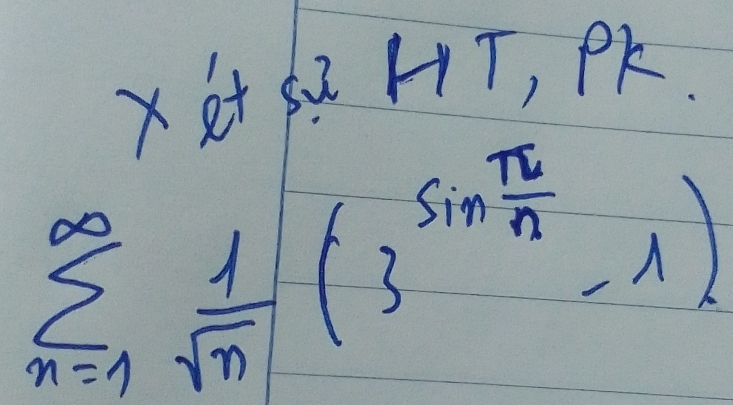 Xét sự HT, PK.
$\sum_{n=1}^{\infty} \frac{1}{\sqrt{n}} \left( 3^{\sin \frac{\pi}{n}} - 1 \right)$